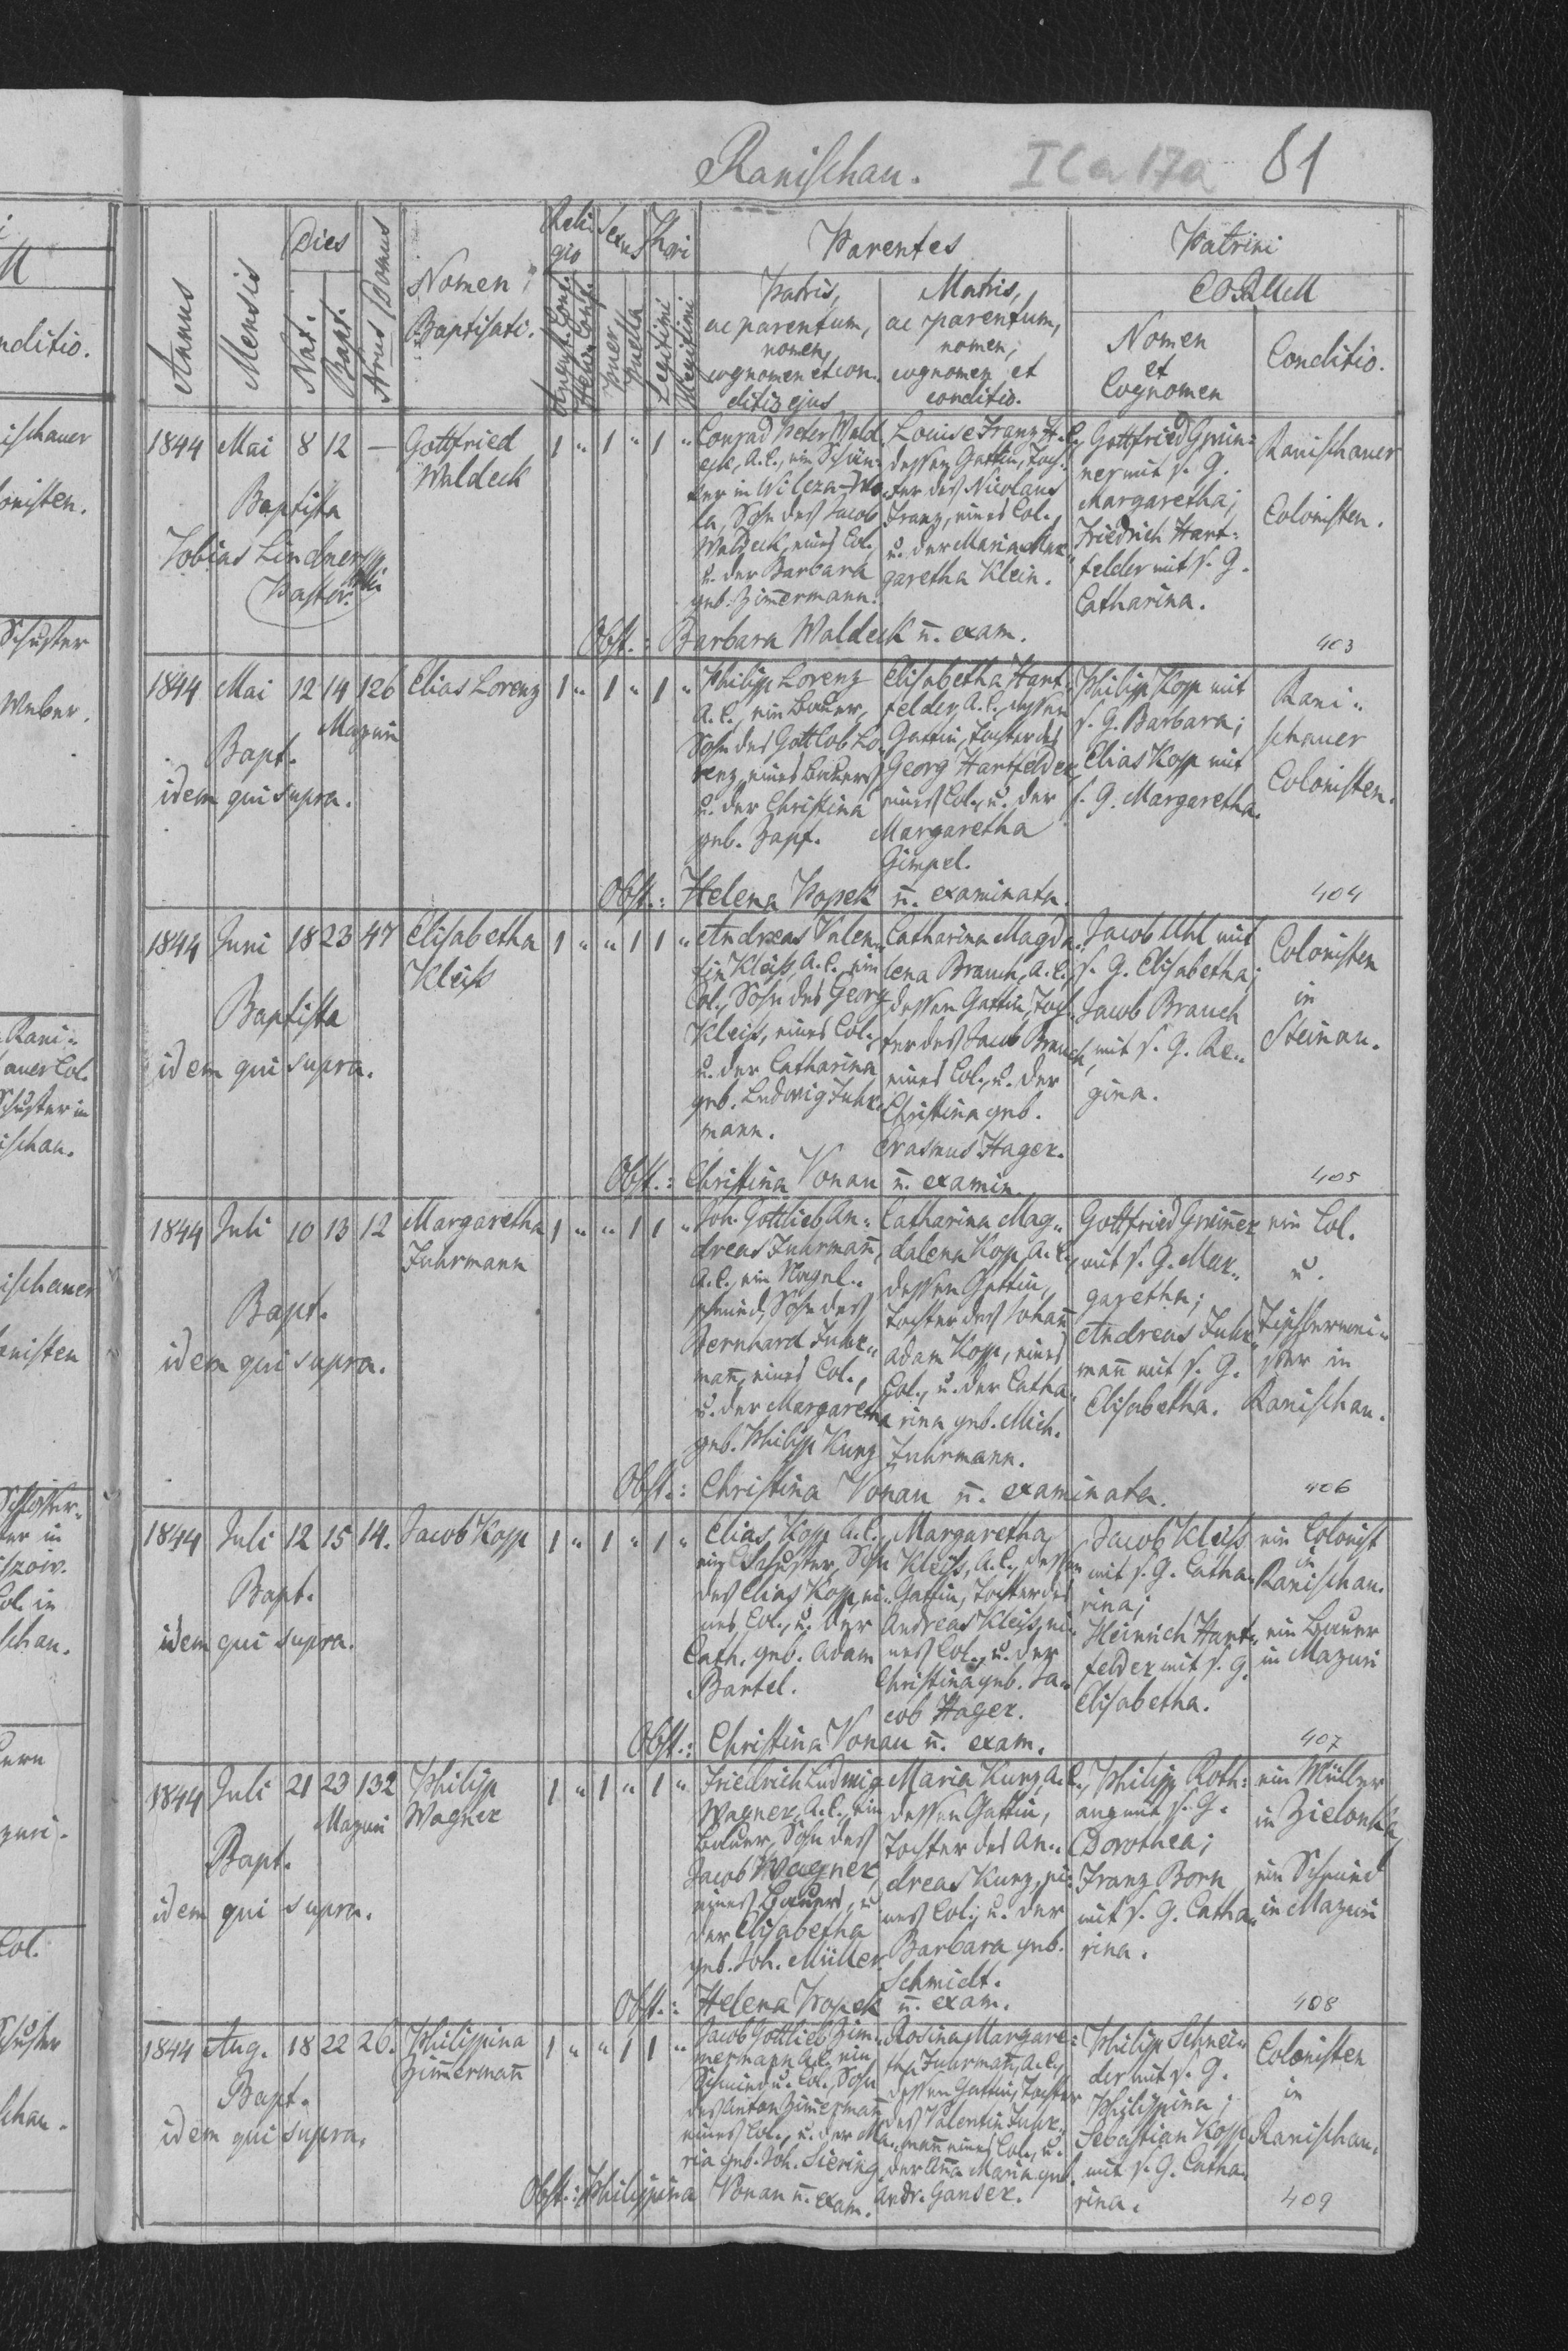 Ranischau.
I Ca 17a
81
Annus
Mensis
Dies
Nat.
Bapt.
Nrus Domus
Nomen
Baptisati.
Religio
August. Conf.
Helv. Conf.
Sexus
Puer
Puella
Thori
Legitimi
Illegitimi
Parentes
Patris,
ac parentum,
nomen,
cognomen et con-
ditio ejus
Matris,
ac parentum,
nomen,
cognomen et
conditio.
Patrini
EORUM
Nomen
et
Cognomen
Conditio.
1844 Mai 8 12 — Gottfried
Waldeck
1 " 1 " 1 "
Baptista
Tobias Lindner
Pastor
Conrad Peter Wald-
eck, A.C., ein Schus-
ter in Wilcza-Wo-
la, Sohn des Jacob
Waldeck, eines Col.,
u. der Barbara
geb. Zimermann.
Louise Franz A.C.,
dessen Gattin, Toch-
ter des Nicolaus
Franz, eines Col.,
u. der Maria Mar-
garetha Klein.
Gottfried Grui-
ner mit s. G.
Margaretha;
Friedrich Hart-
felder mit s. G.
Catharina.
Ranischauer
Colonisten.
Obst.: Barbara Waldeck n. exam.
403
1844 Mai 12 14 126 Elias Lorenz 1 " 1 " 1 "
Mazuri
Bapt.
idem qui supra.
Philipp Lorenz
A.C., ein Bauer,
Sohn des Gottlob Lo-
renz, eines Bauers
u. der Christina
geb. Zapf.
Elisabetha Hart-
felder, A.C., dessen
Gattin, Tochter des
Georg Hartfelder,
eines Col., u. der
Margaretha
Gimpel.
Philipp Kopp mit
s. G. Barbara;
Elias Kopp mit
s. G. Margaretha.
Rani-
schauer
Colonisten.
Obst.: Helena Popek n. examinata.
404
1844 Juni 18 23 47 Elisabetha
Kleiß
1 " " 1 1 "
Baptista
idem qui supra.
Andreas Valen-
tin Kleiß, A.C., ein
Col., Sohn des Georg
Kleiß, eines Col.,
u. der Catharina
geb. Ludwig Fuhr-
mann.
Catharina Magda-
lena Brauch, A.C.,
dessen Gattin, Toch-
ter des Jacob Brauch,
eines Col., u. der
Christina geb.
Erasmus Hager.
Jacob Uhl mit
s. G. Elisabetha;
Jacob Brauch
mit s. G. Re-
gina.
Colonisten
in
Steinau.
Obst.: Christina Vonau n. examin.
405
1844 Juli 10 13 12 Margaretha
Fuhrmann
1 " " 1 1 "
Bapt.
idem qui supra.
Joh. Gottlieb An-
dreas Fuhrmañ,
A.C., ein Nagel-
schmied, Sohn des
Bernhard Fuhr-
mañ, eines Col.,
u. der Margaretha
geb. Philipp Kurz
Catharina Mag-
dalena Kopp, A.C.,
dessen Gattin,
Tochter des Johañ
Adam Kopp, eines
Col., u. der Catha-
rina geb. Mich.
Fuhrmann.
Gottfried Gruiner
mit s. G. Mar-
garetha;
Andreas Fuhr-
mañ mit s. G.
Elisabetha.
ein Col.
u.
Tischlermei-
ster in
Ranischau.
Obst.: Christina Vonau n. examinata.
406
1844 Juli 12 15 14. Jacob Kopp 1 " 1 " 1 "
Bapt.
idem qui supra.
Elias Kopp A.C.,
ein Schuster, Sohn
des Elias Kopp, ei-
nes Col., u. der
Cath. geb. Adam
Bartel.
Margaretha
Kleiß, A.C., dessen
Gattin, Tochter des
Andreas Kleiß, ei-
nes Col., u. der
Christina geb. Ja-
cob Hager.
Jacob Kleiß
mit s. G. Catha-
rina;
Heinrich Hart-
felder mit s. G.
Elisabetha.
ein Colonist
in
Ranischau.
ein Bauer
in Mazuri
Obst.: Christina Vonau n. exam.
407
1844 Juli 21 23 132 Philipp
Mazuri Wagner
1 " 1 " 1 "
Bapt.
idem qui supra.
Friedrich Ludwig
Wagner, A.C., ein
Bauer, Sohn des
Jacob Wagner,
eines Bauers, u.
der Elisabetha
geb. Joh. Müller
Maria Kurz, A.C.,
dessen Gattin,
Tochter des An-
dreas Kurz, ei-
nes Col., u. der
Barbara geb.
Schmidt.
Philipp Roth-
aug mit s. G.
Dorothea;
Franz Born
mit s. G. Catha-
rina.
ein Müller
in Zielonka,
ein Schmied
in Mazuri
Obst.: Helena Popek n. exam.
408
1844 Aug. 18 22 26. Philippina
Zimmermañ
1 " " 1 1 "
Bapt.
idem qui supra.
Jacob Gottlieb Zim-
mermann A.C. ein
Schmied u. Col., Sohn
des Anton Zimermañ
eines Col., u. der Ma-
ria geb. Joh. Siering
Rosina Margare-
tha Fuhrmañ, A.C.,
dessen Gattin, Tochter
des Valentin Fuhr-
mañ eines Col., u.
der Aña Maria geb.
Andr. Ganser.
Philipp Schnei-
der mit s. G.
Philippina;
Sebastian Kopp
mit s. G. Catha-
rina.
Colonisten
in
Ranischau.
Obst.: Philippina Vonau n. exam.
409